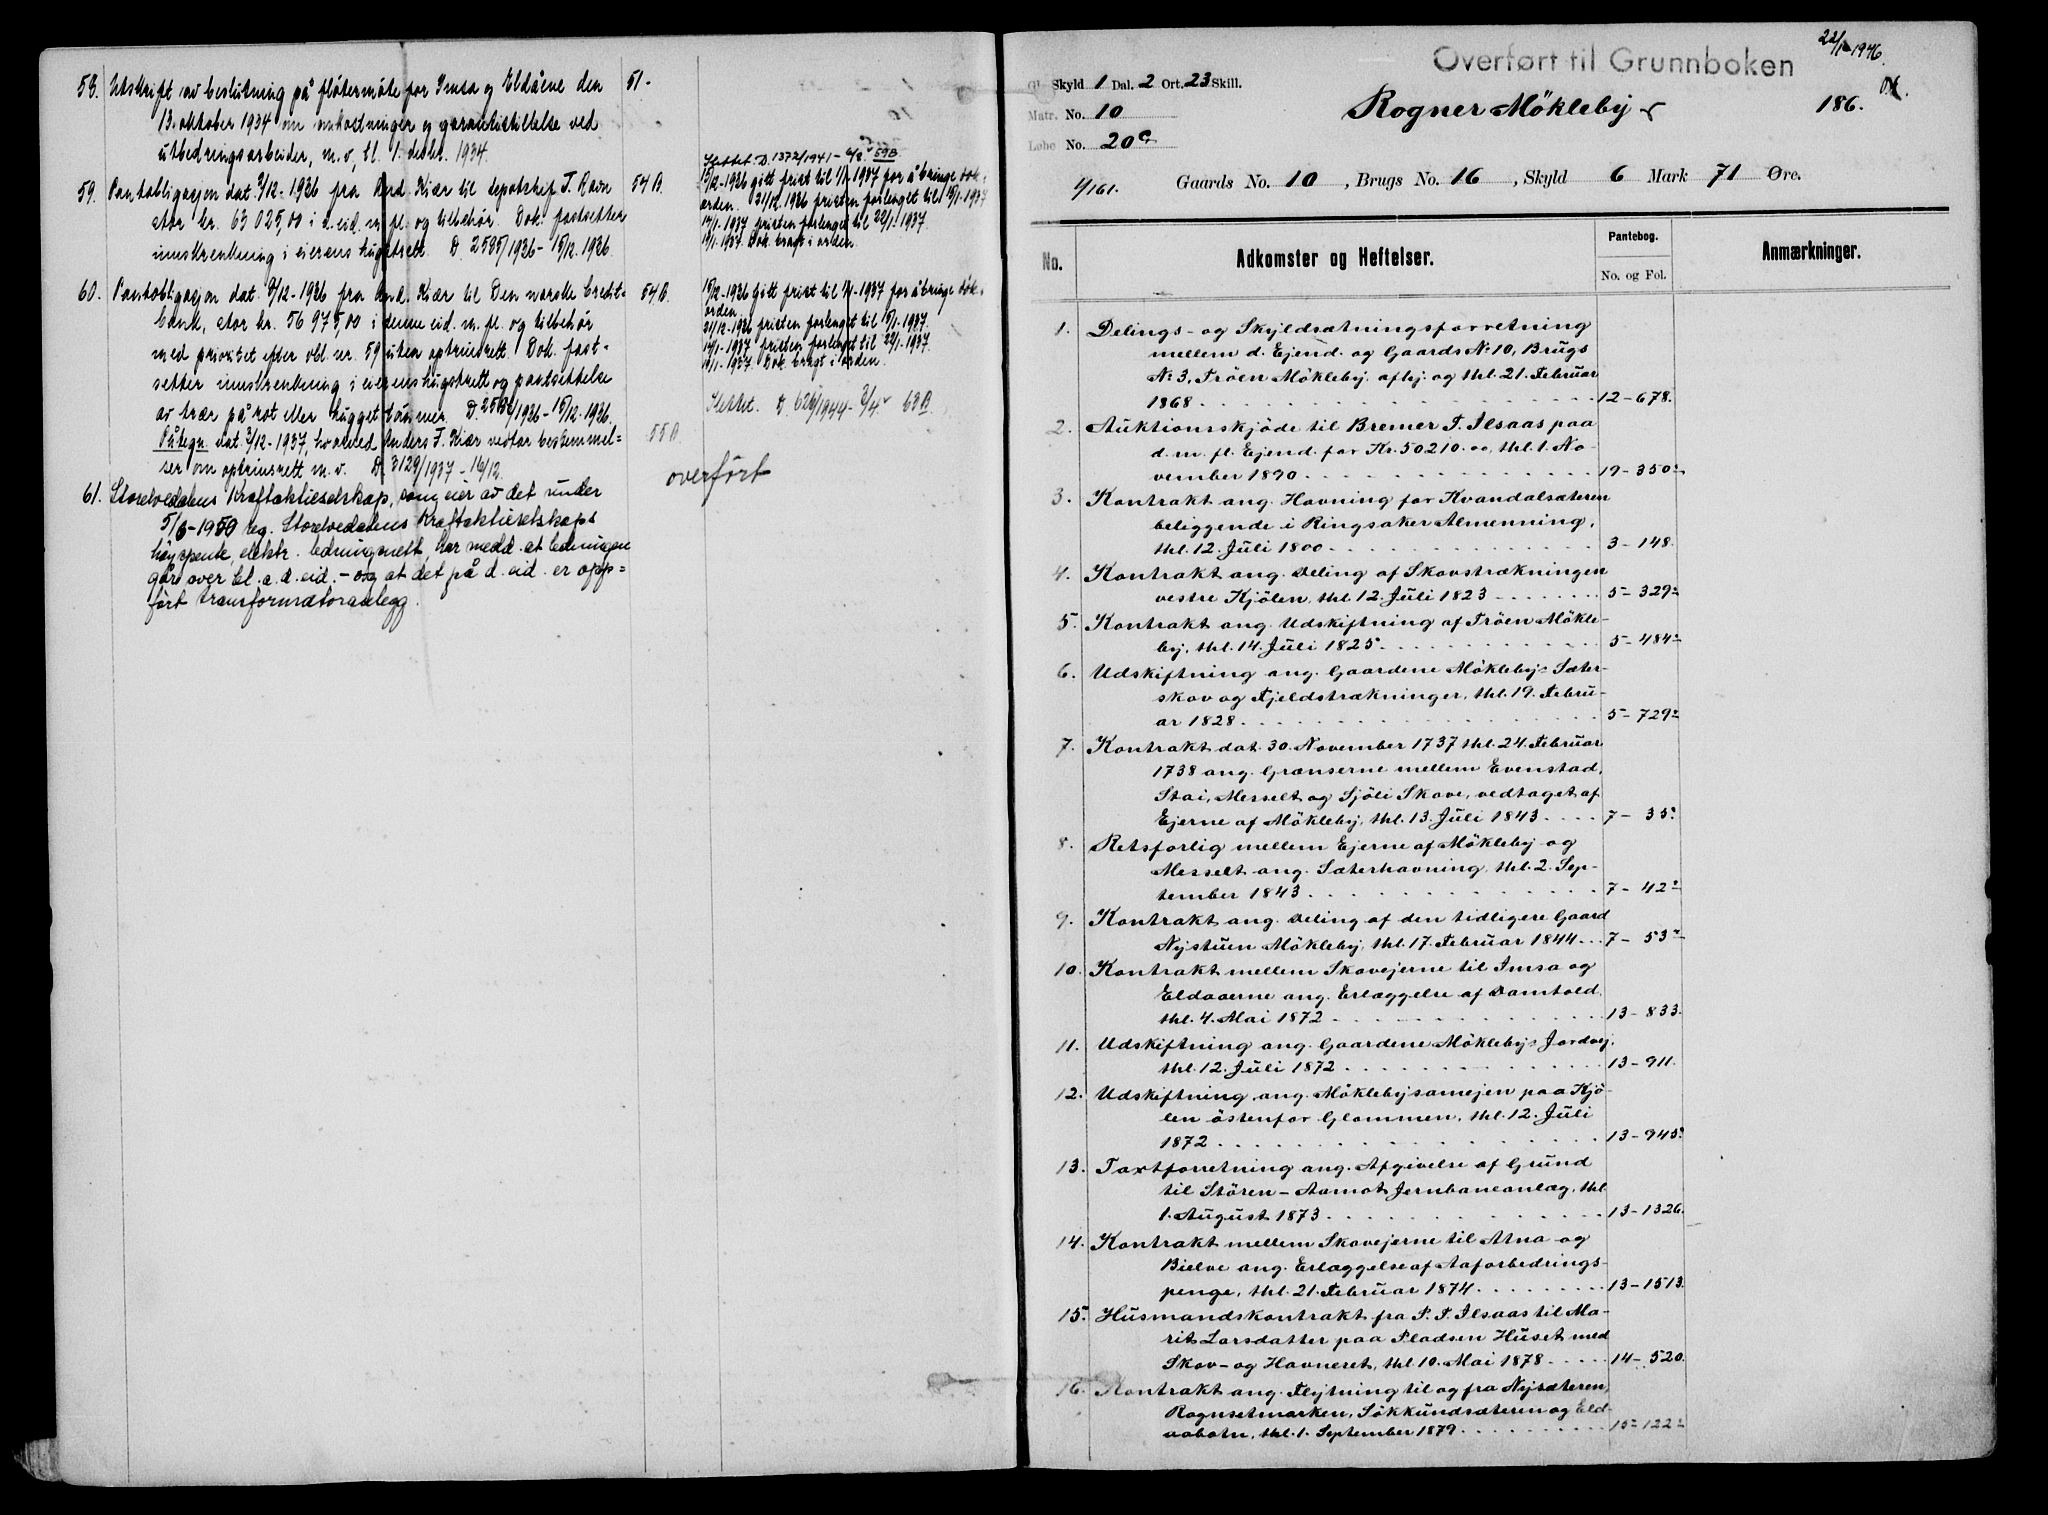 58. Utskrift av beslutning på fløtermøte for Imsa og Eldåene den 51-
13. oktober 1934 om omkostninger og garantistillelse ved
utbedringsarbeider, m.v., tl. 1. desbr. 1934.
59. Pantobligasjon dat. 3/12-1936 fra And. Kiær til depotchef T. Ravn 54B.
stor kr. 63 025,00 i d. eid. m. fl. og tilbehør. Dok. fastsetter
innskrenkning i eierens hugstrett. D. 2585/1936 - 15/12.1936.
Slettet. D. 1372/1941 - 6/8. 59B
15/12-1936 gitt frist til 1/1-1937 for å bringe dok. i
orden. 31/12.1936 fristen forlenget til 15/1-1937
14/1-1937 fristen forlenget til 22/1-1937.
19/1-1937. Dok. bragt i orden.
60. Pantobligasjon dat. 3/12-1936 fra And. Kiær til Den norske Credit- 54B.
bank, stor kr. 56 975,00 i denne eid. m. fl. og tilbehør
med prioritet efter obl. nr. 59 uten optrinsrett. Dok. fast-
setter innskrenkning i eierens hugstrett og pantsettelse
av trær på rot eller hugget tømmer. D. 2586/1936 - 15/12-1936.
Påtegn. dat. 3/12-1937, hvorved Anders F. Kiær vedtar bestemmel= 55B.
ser om optrinsrett m.v. D. 3129/1937 - 16/12.
15/12-1936 gitt frist til 1/1-1937 for å bringe dok. i
orden.
31/12-1936 fristen forlenget til 15/1-1937.
14/1-1937 fristen forlenget til 22/1-1937.
19/1-1937. Dok. bragt i orden.
Slettet. D. 626/1944 - 3/4. 63B
overført
61. Storelvedalens Kraftaktieselskap, som eier av det under
5/6-1950 reg. Storelvedalens Kraftaktieselskaps
høyspente elektr. ledningsnett, har medd. at ledningen
går over bl. a. d. eid. - og at det på d. eid. er opp=
ført transformatoranlegg.
Overført til Grunnboken 22/1-1946.
Gl. Skyld 1 Dal. 2 Ort. 23 Skill.
Matr. No. 10
Løbe No. 20c
Rogner Møkleby
186.
1/161.
Gaards No. 10, Brugs No. 16, Skyld 6 Mark 71 Øre.
No. Adkomster og Heftelser. Pantebog. No. og Fol. Anmærkninger.
1. Delings- og Skyldsætningsforretning
mellem d. Ejend. og Gaards No 10, Brugs
No 3, Trøen Møkleby. afhj. og thl. 21. Februar
1868. 12-678.
2. Auktionsskjøde til Bremer T. Ilsaas paa
d. m. fl. Ejend. for Kr. 50210.00, thl. 1. No-
vember 1890. 19-350
3. Kontrakt ang. Havning for Kvandalsæteren
beliggende i Ringsaker Almenning,
thl. 12. Juli 1800. 3-148.
4. Kontrakt ang. Deling af Skovstrækningen
vestre Kjølen, thl. 12. Juli 1823 5-329
5. Kontrakt ang. Udskiftning af Trøen Møkle-
by, thl. 14. Juli 1825. 5-484
6. Udskiftning ang. Gaardene Møkleby's Sæter-
skov og Fjeldstrækninger, thl. 19. Febru-
ar 1828. 5-729
7. Kontrakt dat. 30. November 1737 thl. 24. Februar
1738 ang. Grænserne mellem Evenstad,
Stai, Messelt og Sjøli Skove, vedtaget af
Ejerne af Møkleby, thl. 13. Juli 1843. 7-35
8. Retsforlig mellem Ejerne af Møkleby og
Messelt ang. Sæterhavning, thl. 2. Sep-
tember 1843. 7-42
9. Kontrakt ang. Deling af den tidligere Gaard
Nystuen Møkleby, thl. 17. Februar 1844. 7-53
10. Kontrakt mellem Skovejerne til Imsa og
Eldaaerne ang. Erlæggelse af Damhold,
thl. 4. Mai 1872 13-833.
11. Udskiftning ang. Gaardene Møkleby's Jordvej,
thl. 12. Juli 1872 13-911.
12. Udskiftning ang. Møklebysameien paa Kjø-
len østenfor Glommen, thl. 12. Juli
1872 13-945
13. Taxtforretning ang. Afgivelse af Grund
til Støren-Aamot Jernbaneanlæg, thl.
1. August 1873. 13-1326.
14. Kontrakt mellem Skovejerne til Atna og
Bielve ang. Erlæggelse af Aaforbedrings-
penge, thl. 21. Februar 1874. 13-1513.
15. Husmandskontrakt fra P. P. Ilsaas til Ma-
rit Larsdatter paa Pladsen Huset med
Skov- og Havneret, thl. 10. Mai 1878 14-520.
16. Kontrakt ang. Flytning til og fra Nysæteren,
Rognsetmarken, Søkkundsæteren og Eld-
aabotn, thl. 1. September 1879. 15-122